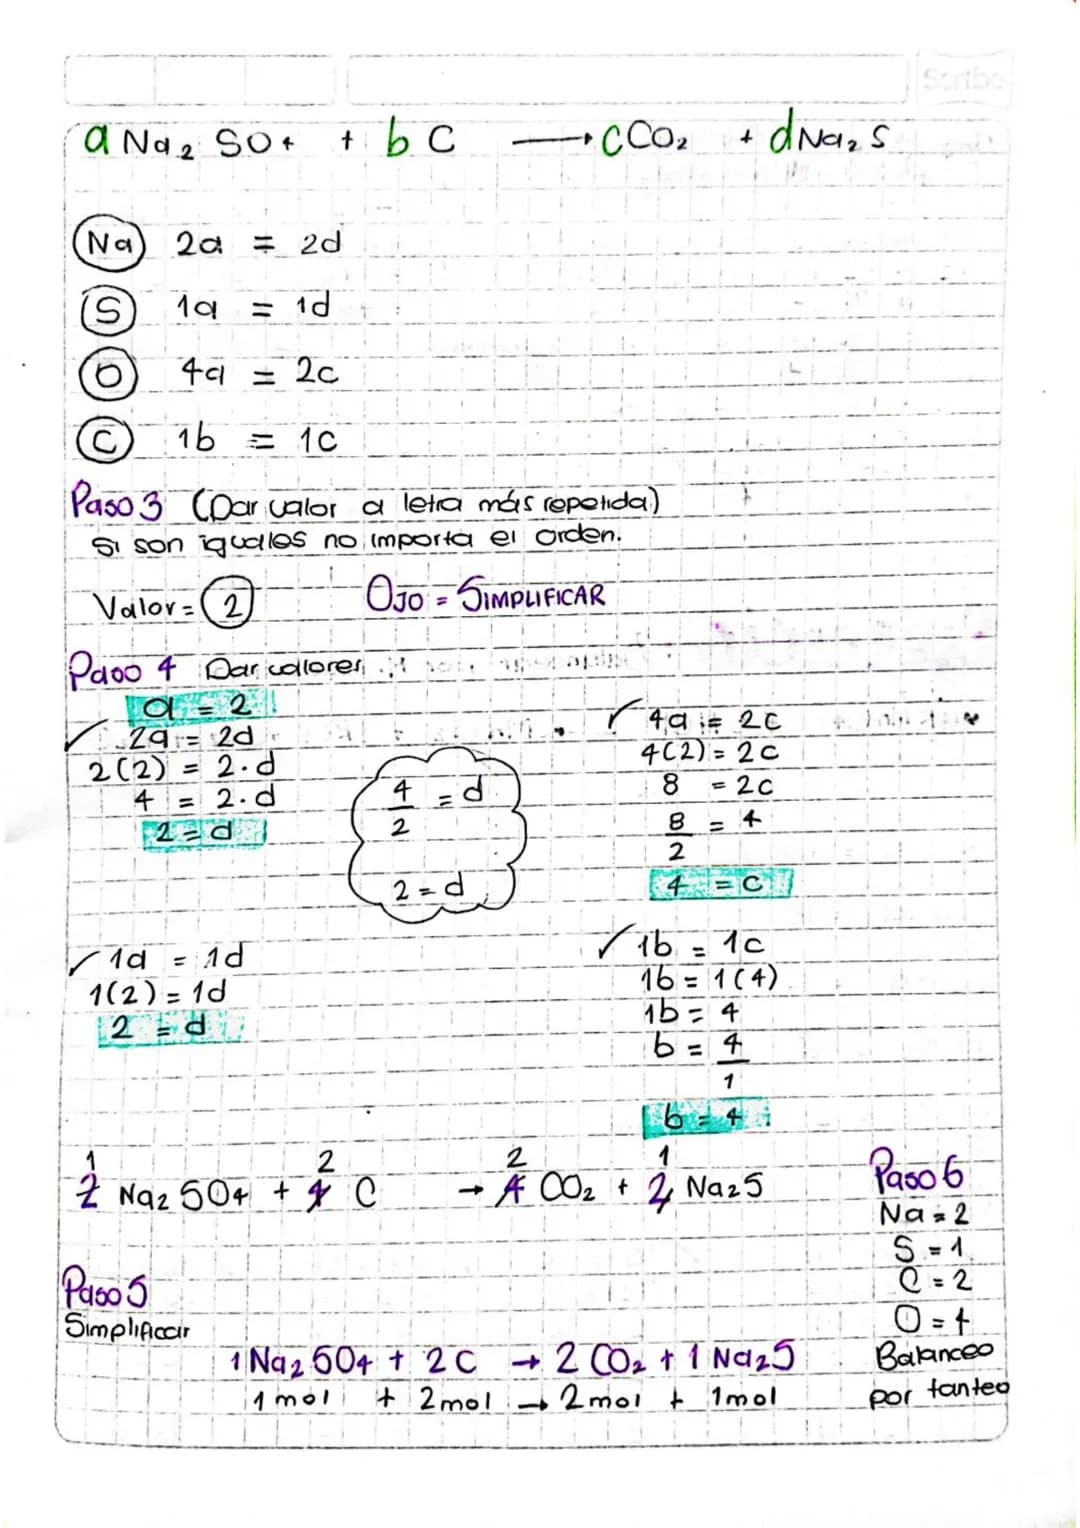 Scribe
a Na₂ SO₄ + b C → c CO₂ + d Na₂ S
Na 2a = 2d
S 1a = 1d
O 4a = 2c
C 1b = 1c
Paso 3 (Dar valor a letra más repetida)
Si son iguales no importa el orden.
Valor = 2 OJO = SIMPLIFICAR
Paso 4 Dar valores
a = 2
2a = 2d
2(2) = 2·d
4 = 2·d
2 = d
4/2 = d
2 = d
4a = 2c
4(2) = 2c
8 = 2c
8/2 = 4
4 = c
1a = 1d
1(2) = 1d
2 = d
1b = 1c
1b = 1(4)
1b = 4
b = 4/1
b = 4
1 2 2 1
2 Na₂ SO₄ + 4 C → 4 CO₂ + 2 Na₂S
Paso 6
Na = 2
S = 1
C = 2
O = 4
Balanceo
por tanteo
Paso 5
Simplificar
1 Na₂ SO₄ + 2 C → 2 CO₂ + 1 Na₂S
1 mol + 2 mol → 2 mol + 1 mol